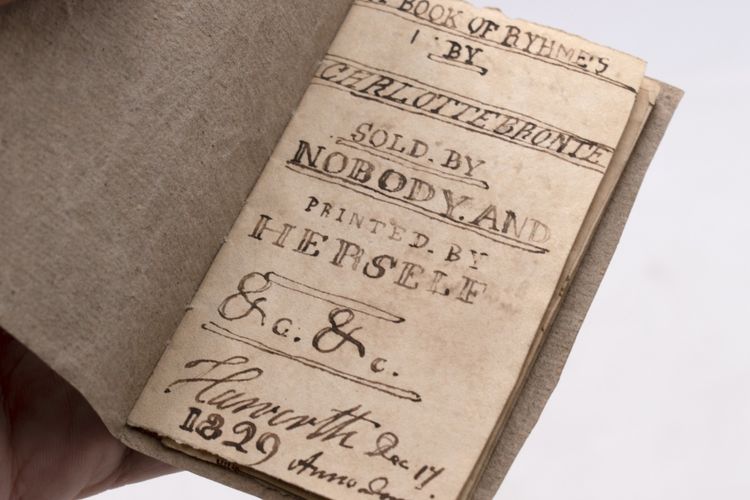 A BOOK OF RYHMES
BY
CHARLOTTE BRONTE
SOLD. BY
NOBODY. AND
PRINTED. BY
HERSELF
&c. &c.
Haworth Dec 17
1829 Anno Dom